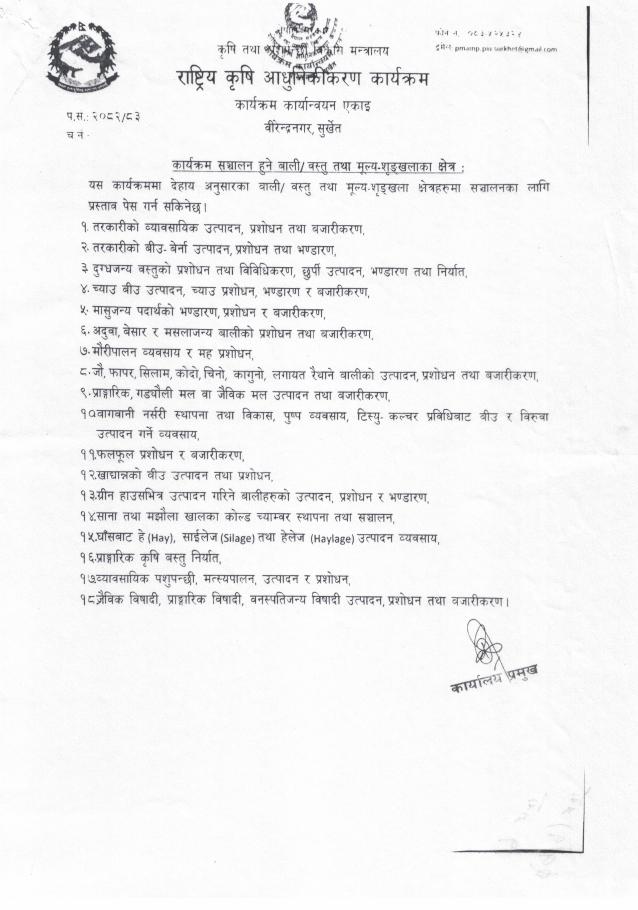 फोन नं.
इमेलः pmamp.piu.surkhet@gmail.com
कृषि तथा मन्त्रालय
राष्ट्रिय कृषि आधुनिकीकरण कार्यक्रम
कार्यक्रम कार्यान्वयन एकाइ
वीरेन्द्रनगर, सुर्खेत
प.स.: २०८२/८३
च नं -
कार्यक्रम सञ्चालन हुने बाली/ वस्तु तथा मूल्य-शृङ्खलाका क्षेत्र :
यस कार्यक्रममा देहाय अनुसारका बाली/ वस्तु तथा मूल्य-शृङ्खला क्षेत्रहरुमा सञ्चालनका लागि
प्रस्ताव पेस गर्न सकिनेछ।
१. तरकारीको व्यावसायिक उत्पादन, प्रशोधन तथा बजारीकरण,
२. तरकारीको बीउ- बेर्ना उत्पादन, प्रशोधन तथा भण्डारण,
३ दुग्धजन्य वस्तुको प्रशोधन तथा विविधिकरण, छुर्पी उत्पादन, भण्डारण तथा निर्यात,
४. च्याउ बीउ उत्पादन, च्याउ प्रशोधन, भण्डारण र बजारीकरण,
५. मासुजन्य पदार्थको भण्डारण, प्रशोधन र बजारीकरण,
६. अदुवा, बेसार र मसलाजन्य बालीको प्रशोधन तथा बजारीकरण,
७. मौरीपालन व्यवसाय र मह प्रशोधन,
८. जौ, फापर, सिलाम, कोदो, चिनो, कागुनो, लगायत रैथाने बालीको उत्पादन, प्रशोधन तथा बजारीकरण,
९. प्राङ्गारिक, गड्यौली मल वा जैविक मल उत्पादन तथा बजारीकरण,
१०बागबानी नर्सरी स्थापना तथा विकास, पुष्प व्यवसाय, टिस्यु- कल्चर प्रविधिबाट बीउ र विरुवा
उत्पादन गर्ने व्यवसाय,
११.फलफूल प्रशोधन र बजारीकरण,
१२.खाद्यान्नको बीउ उत्पादन तथा प्रशोधन,
१३.ग्रीन हाउसभित्र उत्पादन गरिने बालीहरुको उत्पादन, प्रशोधन र भण्डारण,
१४.साना तथा मझौला खालका कोल्ड च्याम्बर स्थापना तथा सञ्चालन,
१५.घाँसबाट हे (Hay), साईलेज (Silage) तथा हेलेज (Haylage) उत्पादन व्यवसाय,
१६.प्राङ्गारिक कृषि बस्तु निर्यात,
१७.व्यावसायिक पशुपन्छी, मत्स्यपालन, उत्पादन र प्रशोधन,
१८.जैविक विषादी, प्राङ्गारिक विषादी, वनस्पतिजन्य विषादी उत्पादन, प्रशोधन तथा बजारीकरण।
कार्यालय प्रमुख